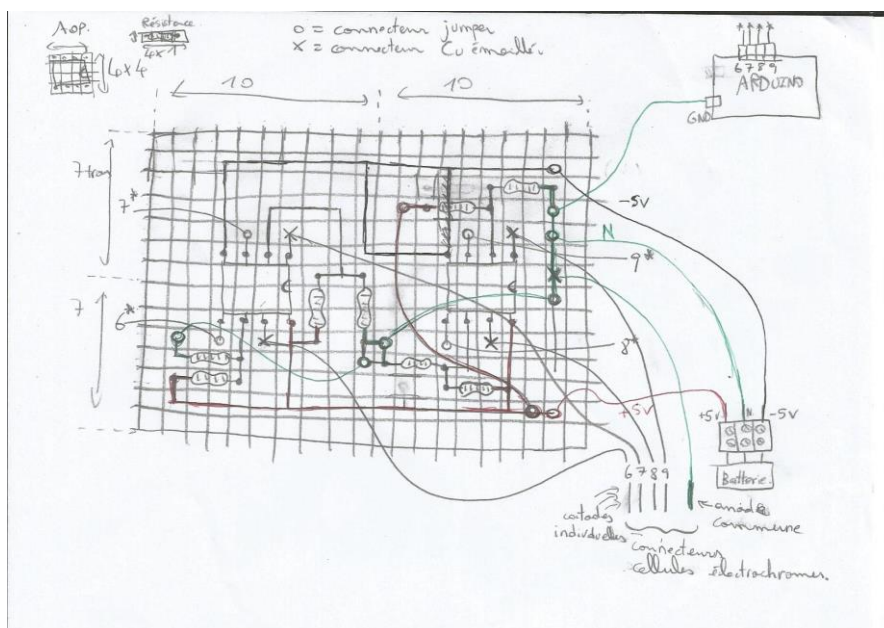 AOP.
4x4
Résistance
4x1
o = connecteur jumper
x = connecteur Cu émaillé.
6 7 8 9
ARDUINO
GND
10
10
7
7*
-5V
N
9*
7
6*
8*
+5V
+5V
N
-5V
Batterie
6 7 8 9
individuelles
commune
connecteurs
cellules électrochromes.